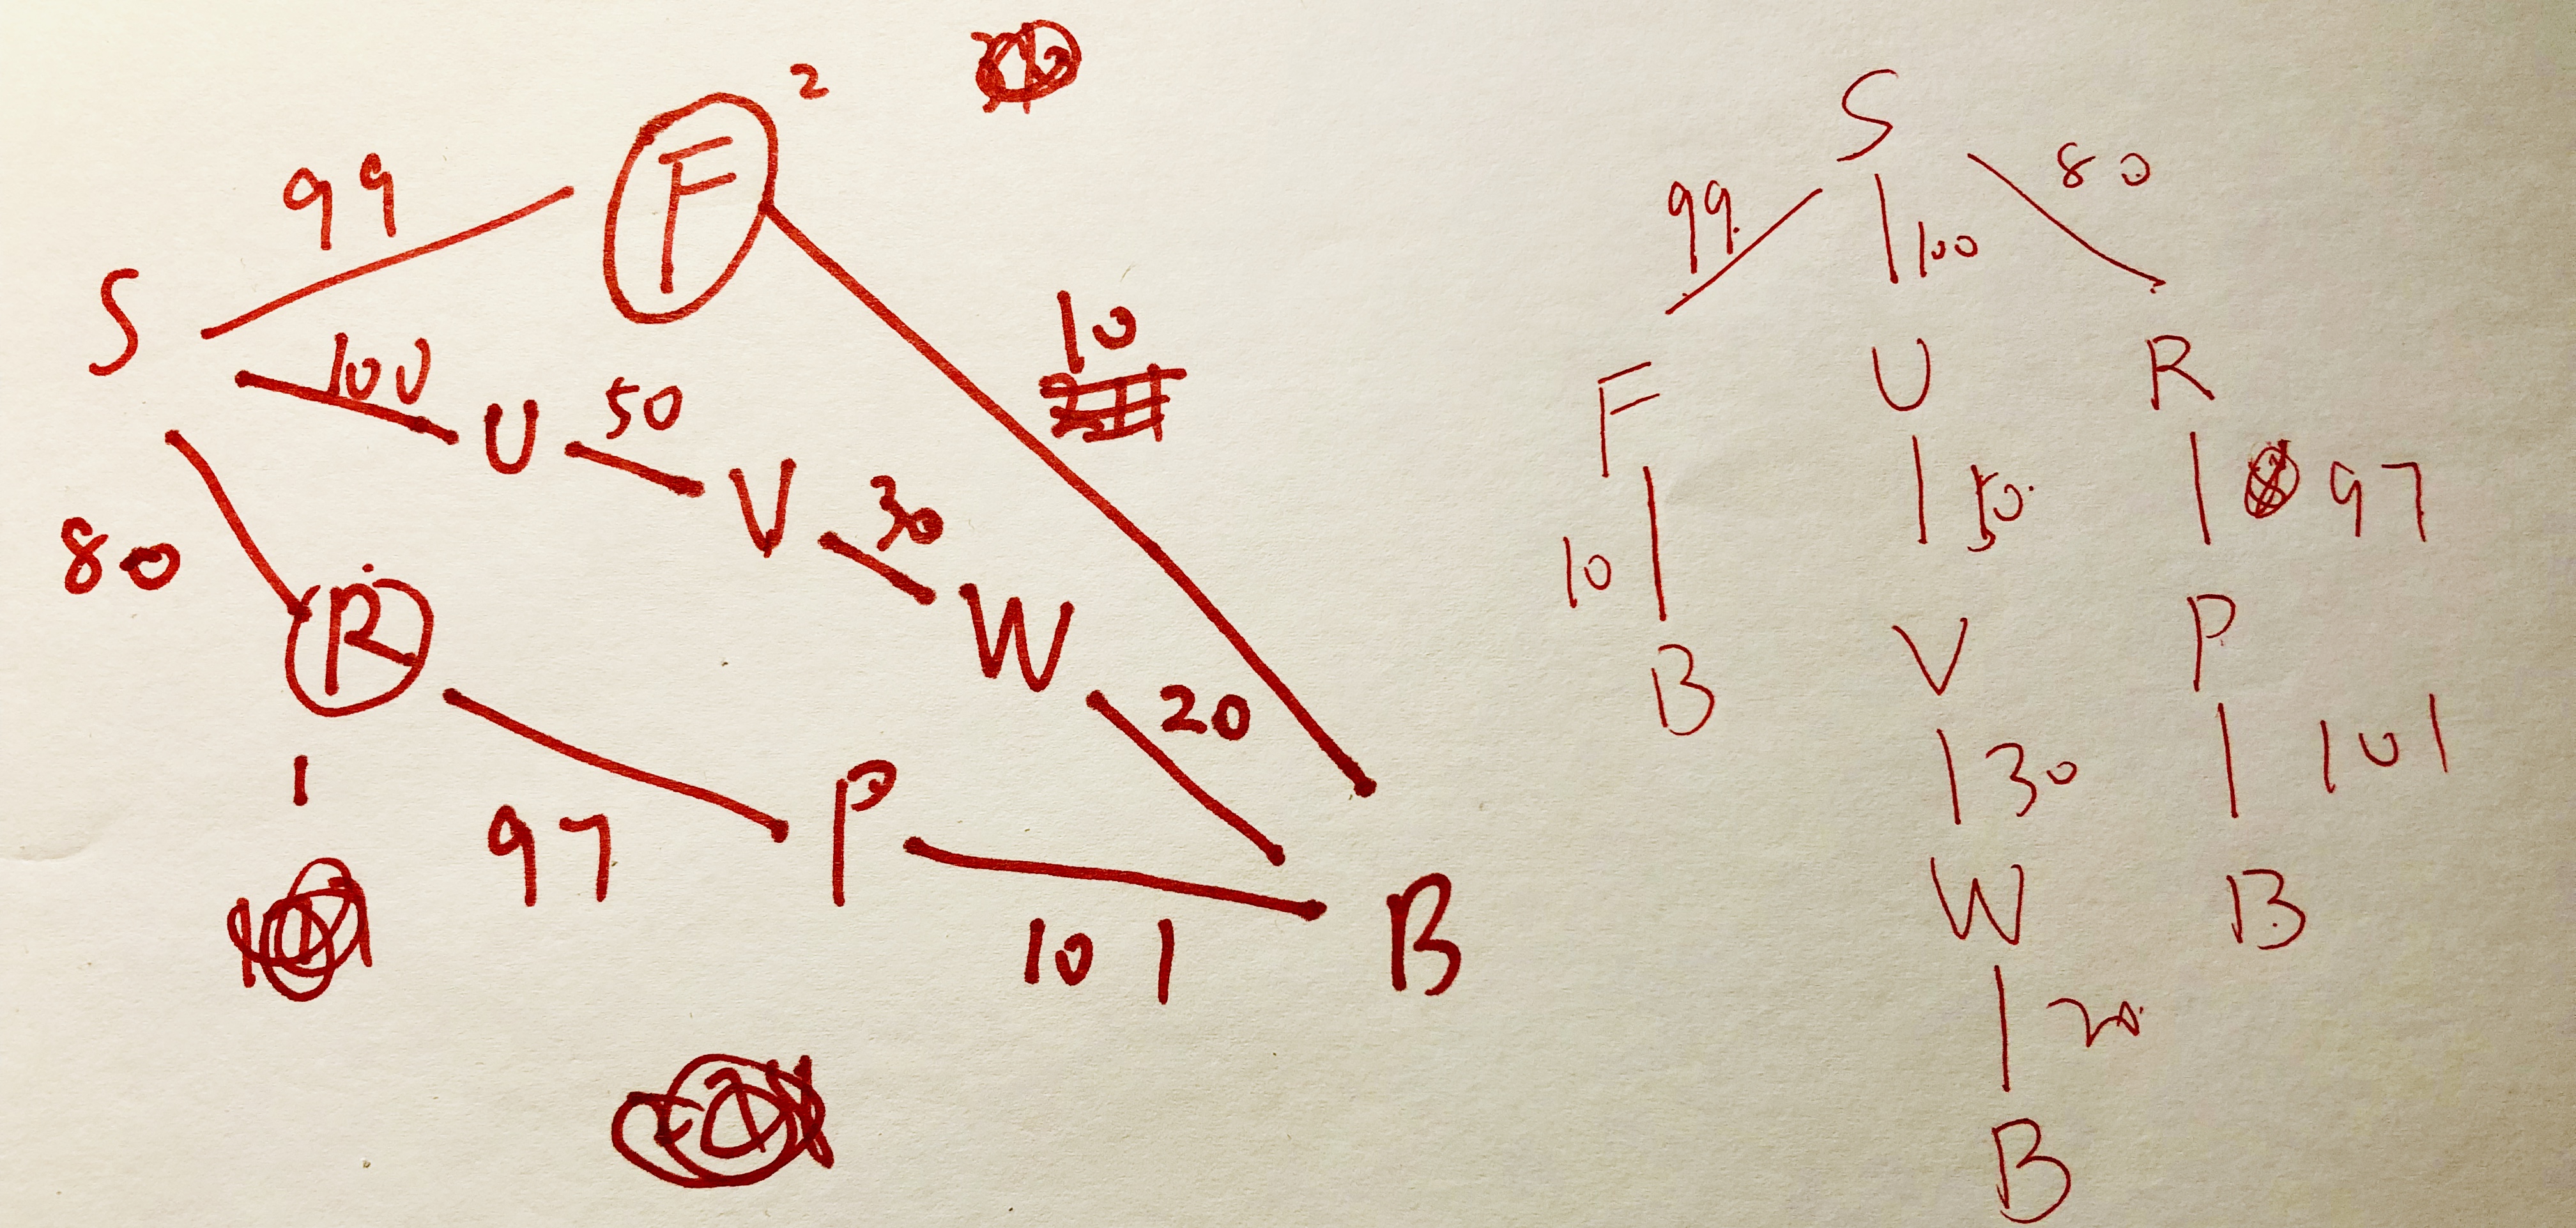 2
99
F
S
10
100
U
50
V
30
W
20
80
R
1
97
P
101
B
S
99
100
80
F
U
R
10
50
97
B
V
P
30
101
W
B
20
B